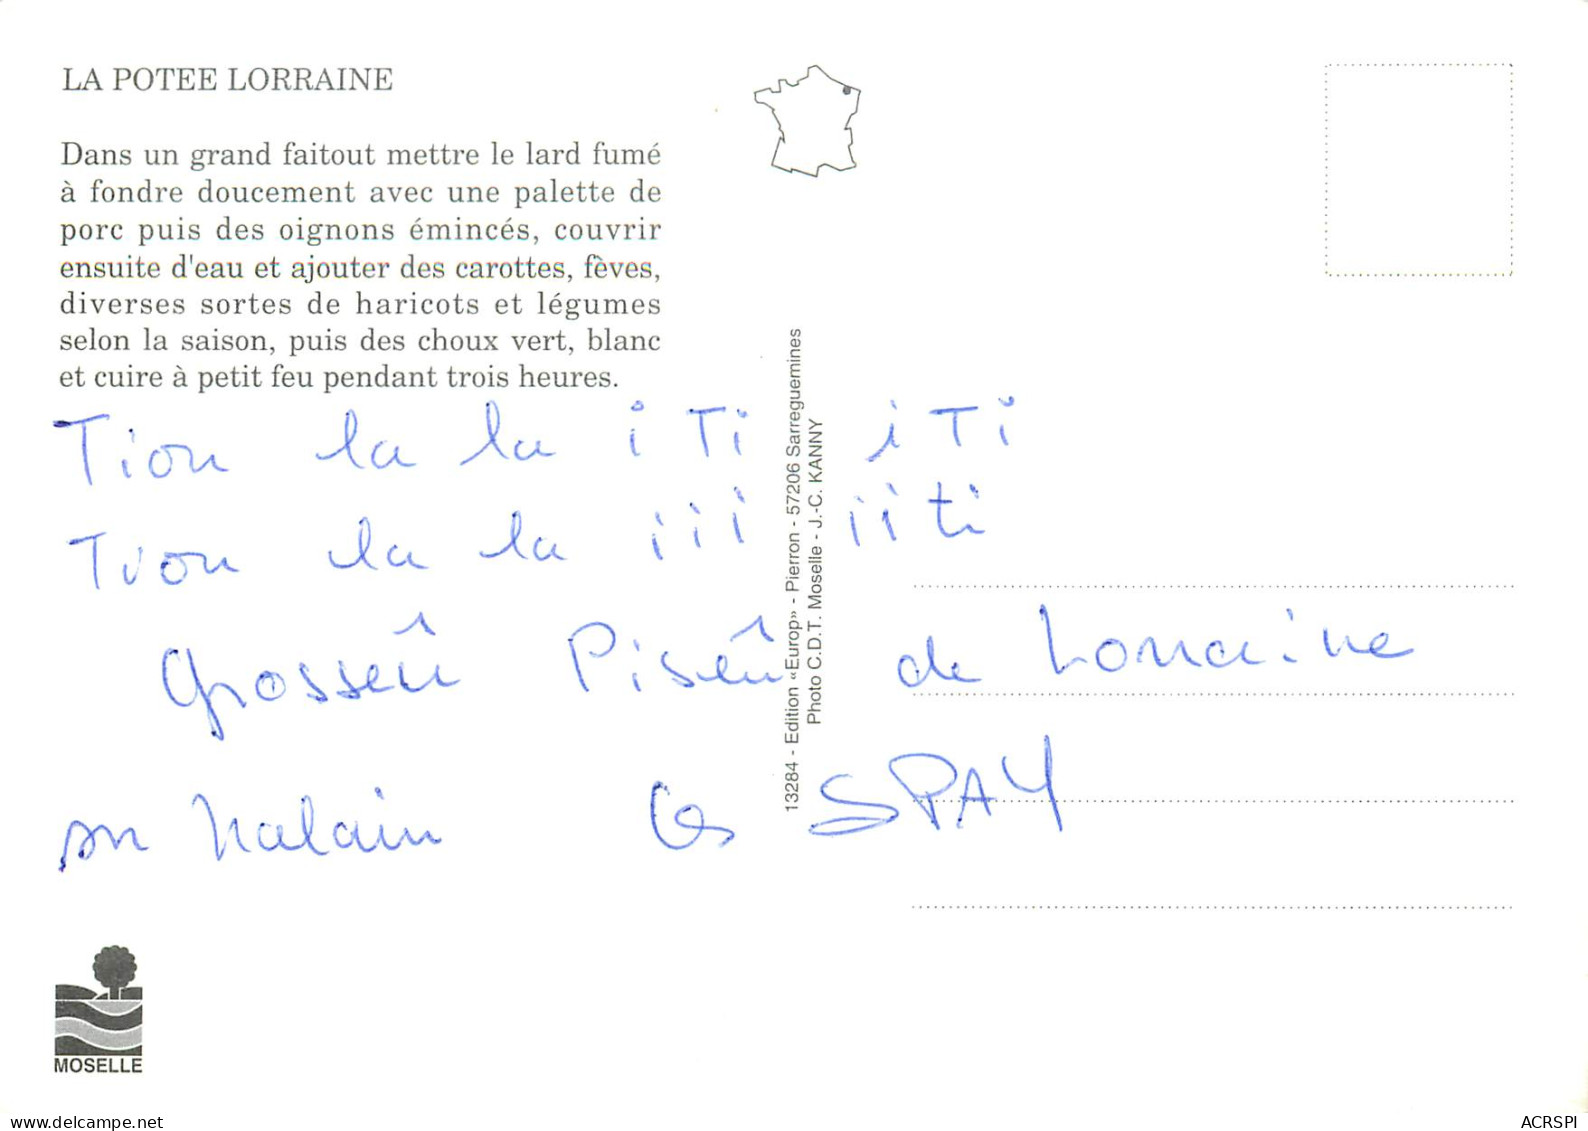 LA POTEE LORRAINE
Dans un grand faitout mettre le lard fumé
à fondre doucement avec une palette de
porc puis des oignons émincés, couvrir
ensuite d'eau et ajouter des carottes, fèves,
diverses sortes de haricots et légumes
selon la saison, puis des choux vert, blanc
et cuire à petit feu pendant trois heures.
Tiou la la i Ti i Ti
Tiou la la i i i i i ti
Grosseû Piseû de Lorraine
Les SPAY
13284 - Edition «Europ» - Pierron - 57206 Sarreguemines
Photo C.D.T. Moselle - J.-C. KANNY
MOSELLE
www.delcampe.net
ACRSPI